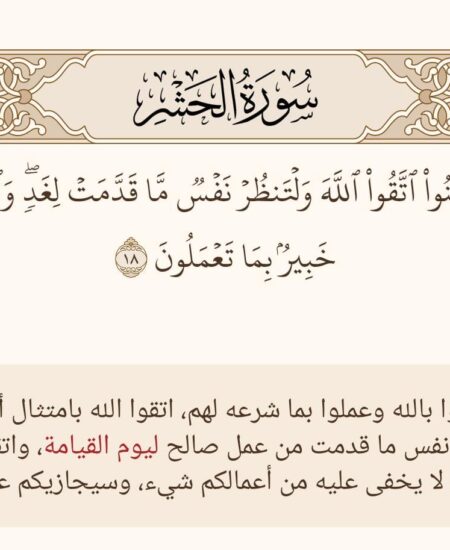 سُورَةُ الحَشْرِ
ٱتَّقُوا۟ ٱللَّهَ وَلْتَنظُرْ نَفْسٌ مَّا قَدَّمَتْ لِغَدٍ ۖ
خَبِيرٌۢ بِمَا تَعْمَلُونَ ١٨
بالله وعملوا بما شرعه لهم، اتقوا الله بامتثال
نفس ما قدمت من عمل صالح ليوم القيامة،
لا يخفى عليه من أعمالكم شيء، وسيجازيكم